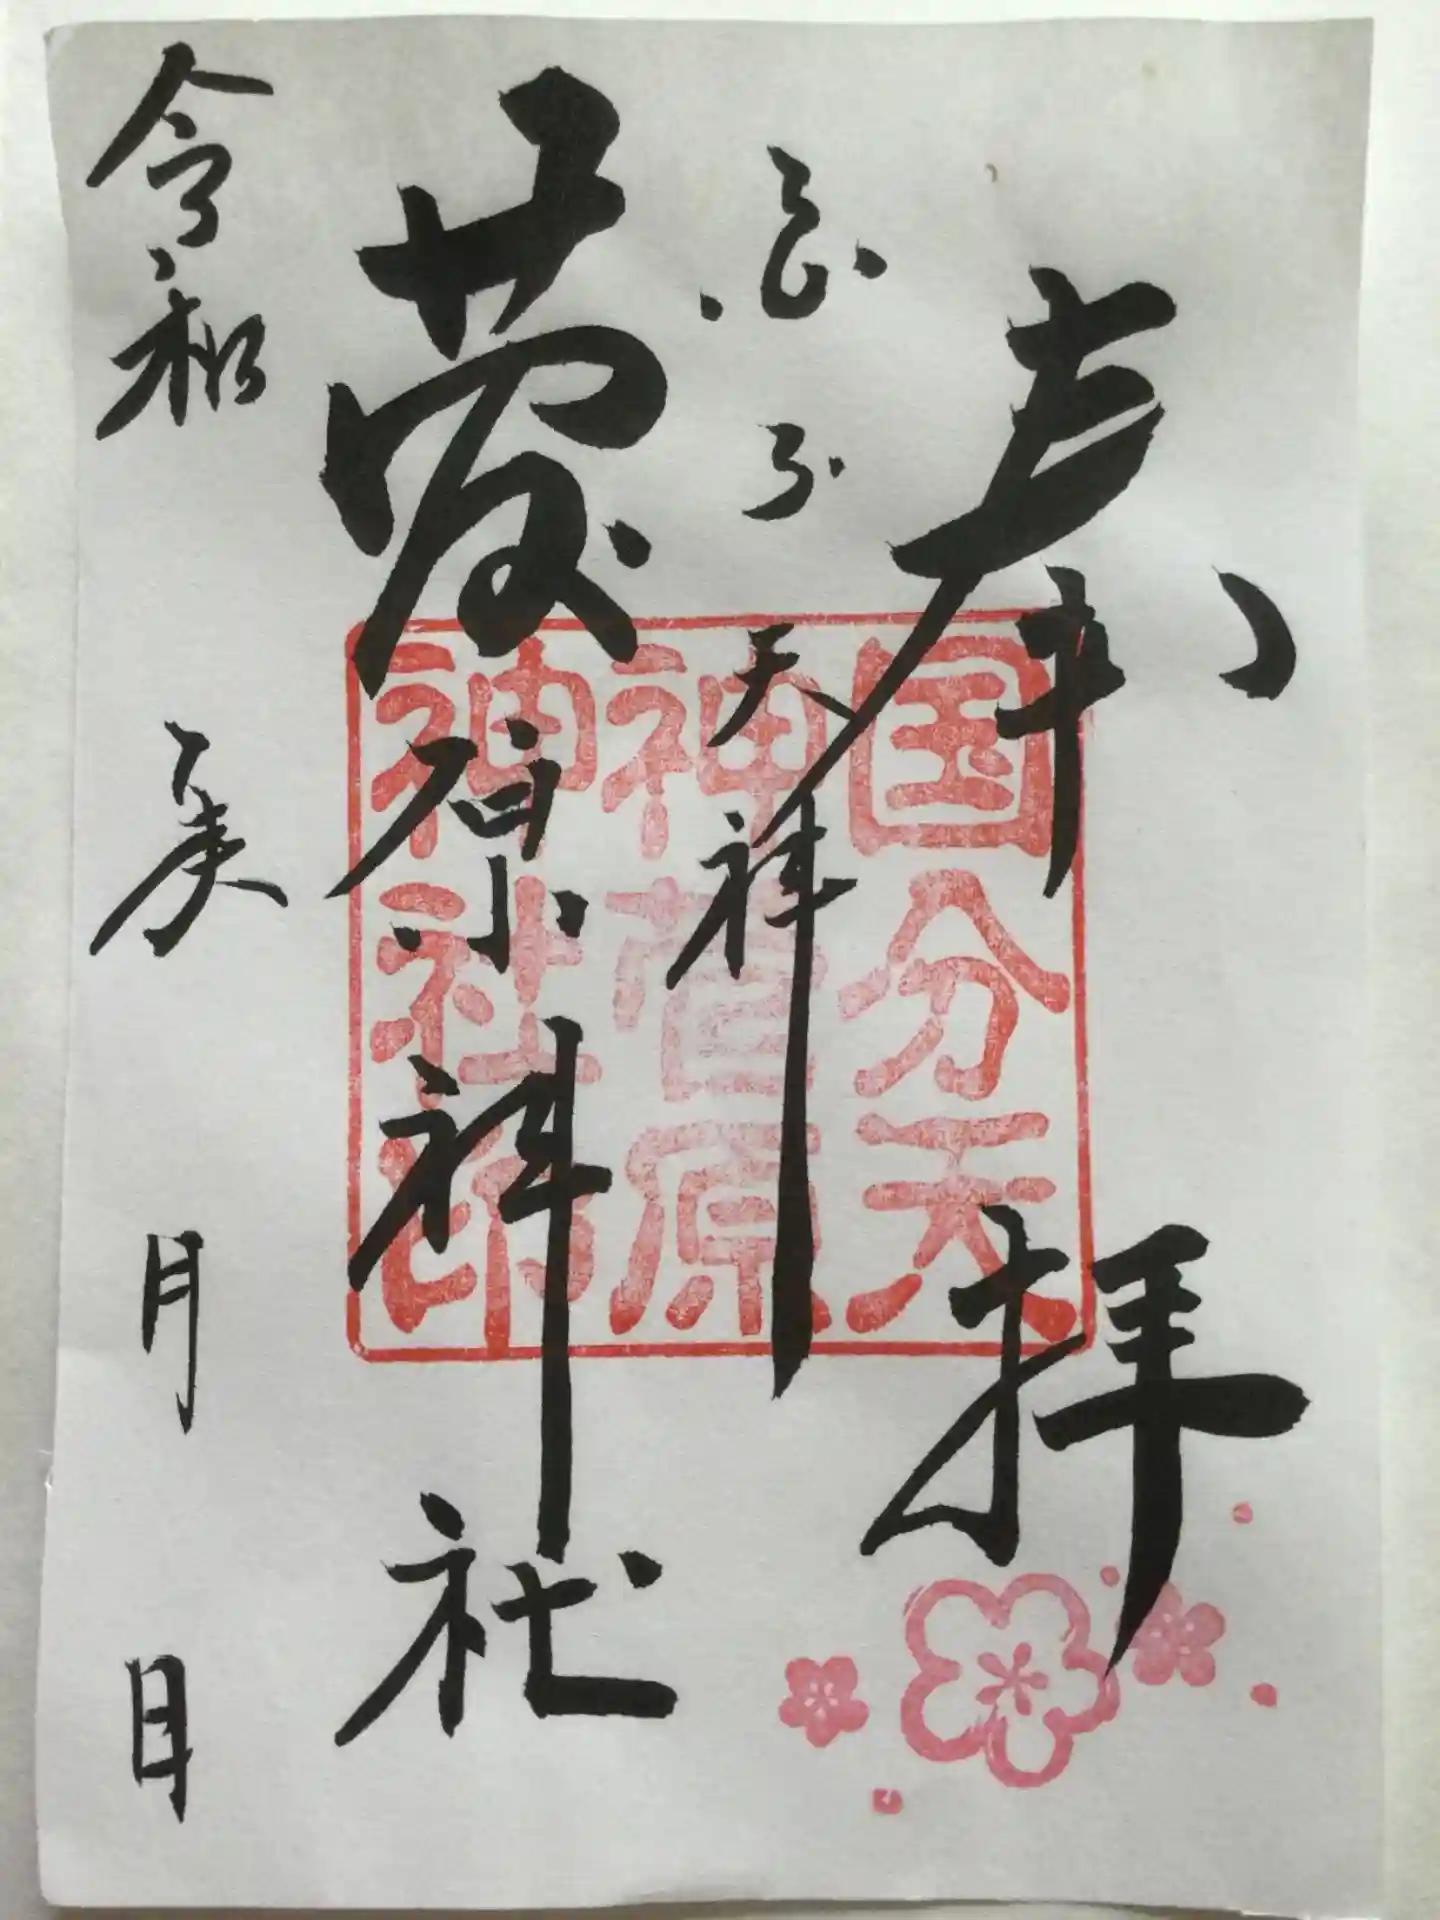 奉拝
国分天神
菅原神社
令和 年 月 日
国分天
神菅原
神社印